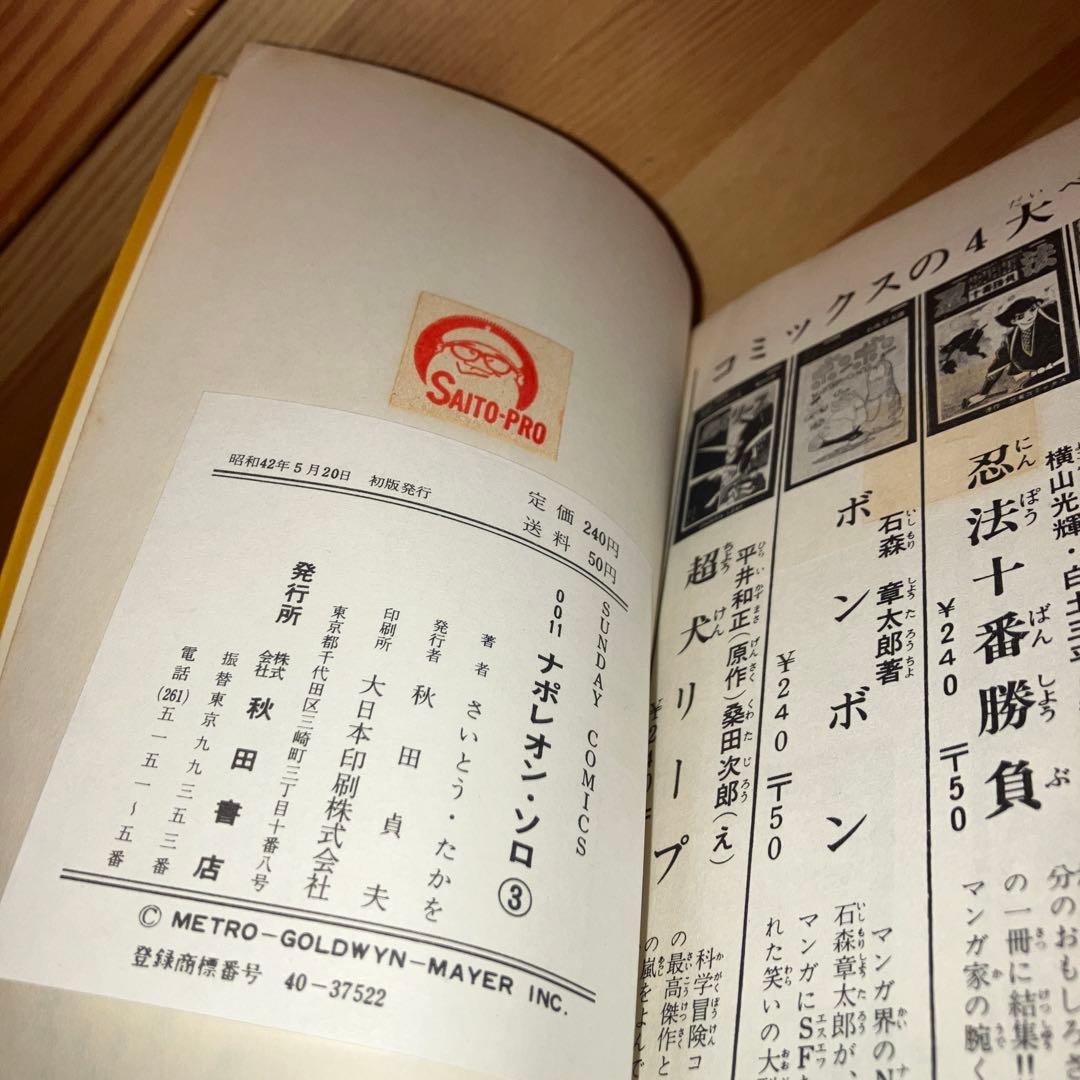 SAITO-PRO
昭和42年5月20日　初版発行
定価 240円
送料 50円
SUNDAY COMICS
0011 ナポレオン・ソロ ③
著者 さいとう・たかを
発行者 秋田貞夫
印刷所 大日本印刷株式会社
東京都千代田区三崎町三丁目十番八号
発行所 株式会社 秋田書店
振替東京九九三五三番
電話(261)五一五一～五番
© METRO-GOLDWYN-MAYER INC.
登録商標番号 40-37522
コミックスの4大
忍法十番勝負
横山光輝・白土三平
¥240 〒50
分のおもしろさ
の一冊に結集!!
マンガ家の腕く
ボンボン
石森 章太郎著
¥240 〒50
マンガ界の
石森章太郎が、
マンガにSF
れた笑いの大
超犬リープ
平井和正(原作)桑田次郎(え)
科学冒険コ
の最高傑作と
の嵐をよんで